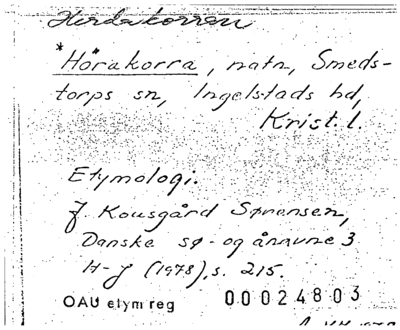 Herdakorren
*Hörakorra, natn, Smeds-
torps sn, Ingelstads hd,
Krist. l.
Etymologi.
J. Kousgård Sørensen,
Danske sø- og ånavne 3
H-J (1978), s. 215.
OAU etym reg 00024803